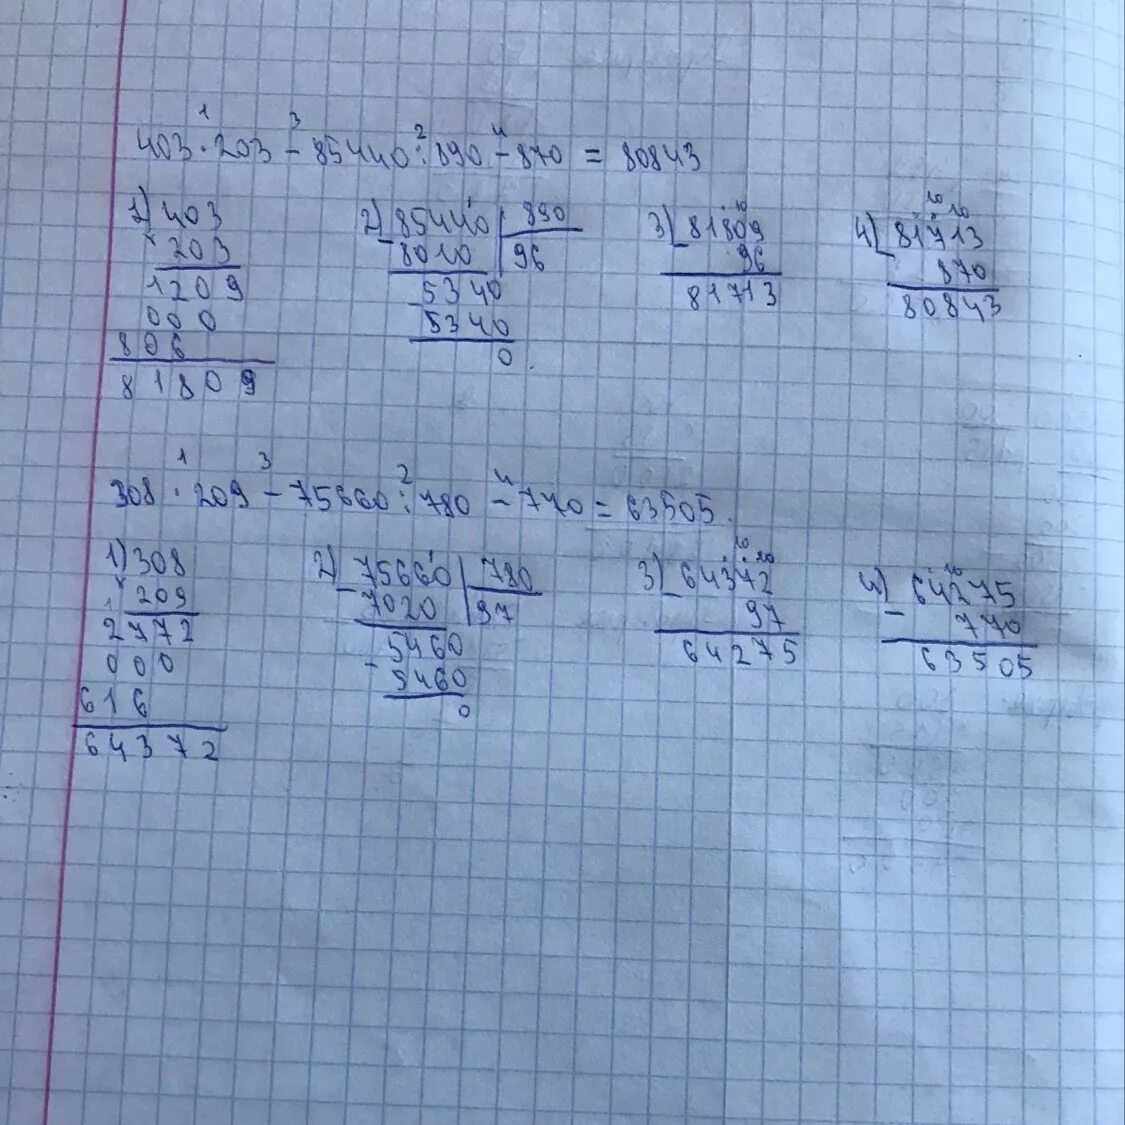 403 · 203 - 85440 : 890 - 870 = 80843
1 3 2 4
1) 403
× 203
1209
000
806
81809
2) 85440 | 890
- 8010 | 96
5340
- 5340
0
3) 81809
- 96
81713
4) 81713
- 870
80843
308 · 209 - 75660 : 780 - 770 = 63505
1 3 2 4
1) 308
× 209
2772
000
616
64372
2) 75660 | 780
- 7020 | 97
5460
- 5460
0
3) 64372
- 97
64275
4) 64275
- 770
63505